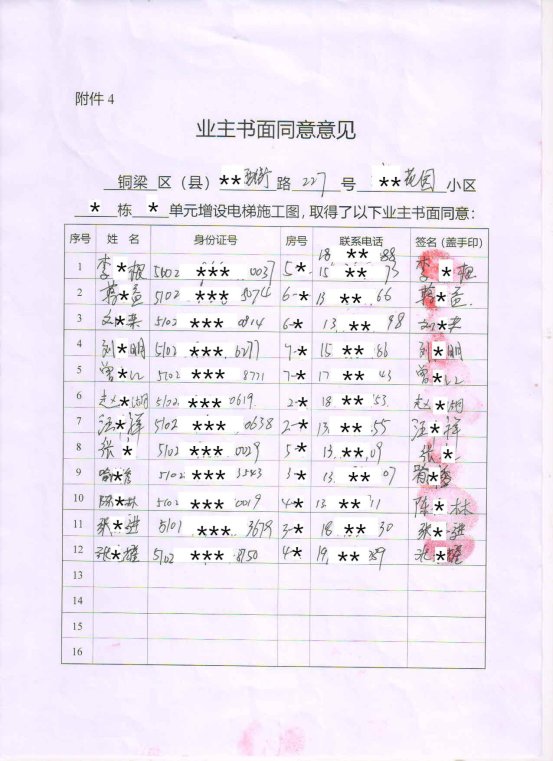 附件 4
业主书面同意意见
铜梁 区（县） ** 路 227 号 **花园 小区
* 栋 * 单元增设电梯施工图，取得了以下业主书面同意：
序号 姓 名 身份证号 房号 联系电话 签名（盖手印）
1 李*椢 5102 *** 0037 5* 18 ** 88 15 ** 75 李*椢
2 *孟 5102 *** 8074 6-* 13 ** 66 *孟
3 刘*英 5102 *** 0814 6-* 13 ** 98 刘*英
4 刘*明 5102 *** 6277 7-* 15 ** 86 刘*明
5 曾*江 5102 *** 8771 7-* 17 ** 43 曾*江
6 赵*湖 5122 *** 0619 2-* 18 ** 53 赵*湖
7 汪*祥 5102 *** 0638 2-* 13 ** 55 汪*祥
8 张* 5102 *** 0029 5* 13 ** 09 张*
9 喻* 5102 *** 3543 3-* 13 ** 07 喻*
10 陈*林 5102 *** 0019 4-* 13 ** 11 陈*林
11 张*进 5101 *** 3679 3-* 18 ** 30 张*进
12 张*耀 5102 *** 8750 4* 19 ** 89 张*耀
13
14
15
16